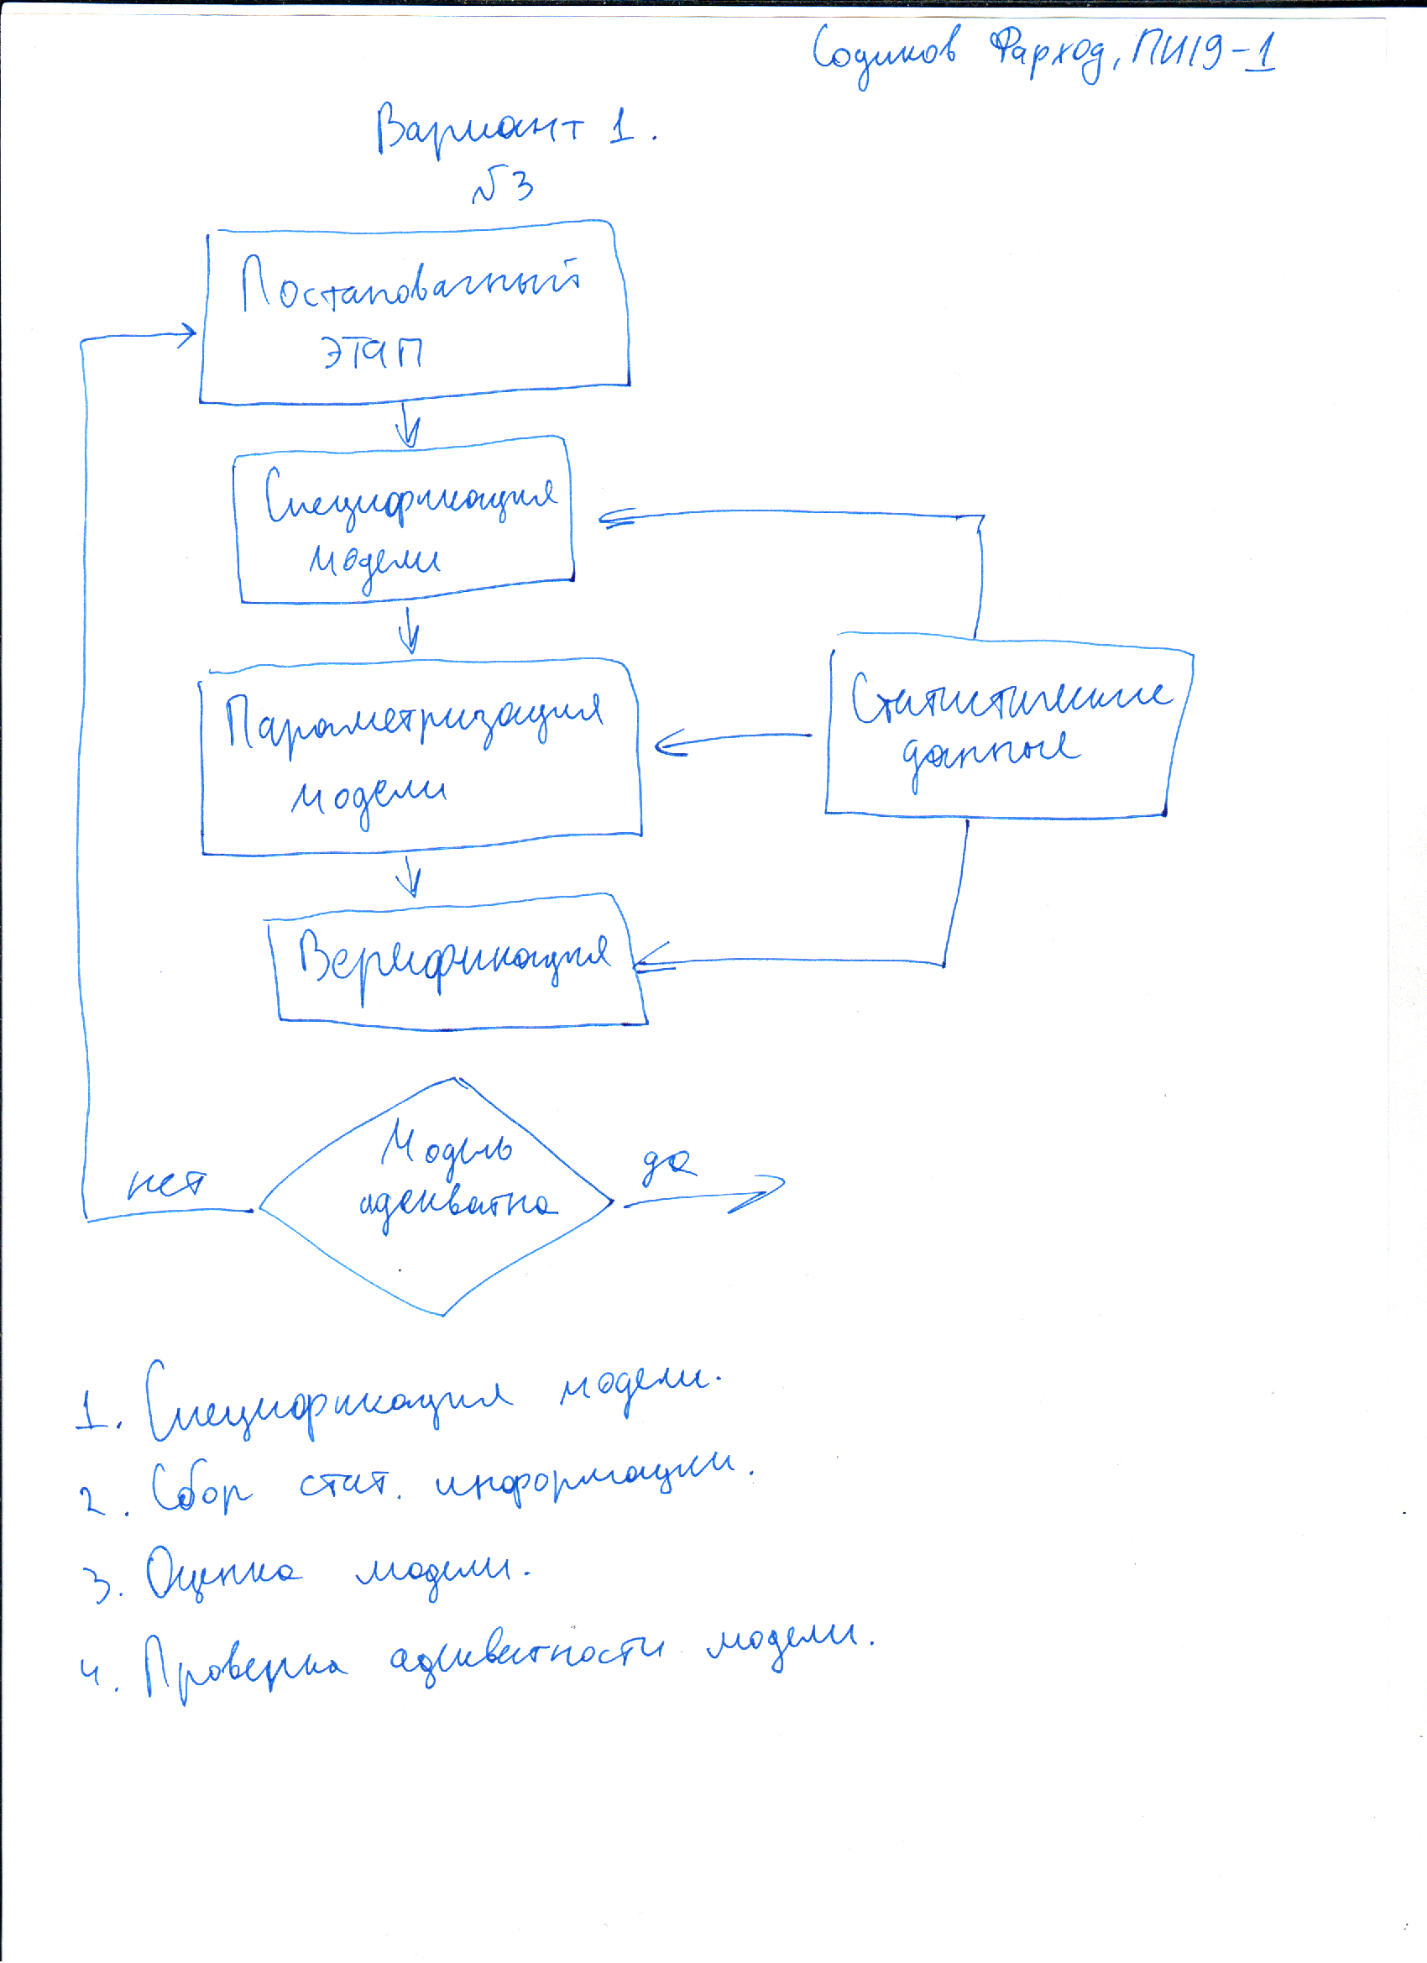 Содиков Фарход, ПИ19-1
Вариант 1.
№3
Постановачный
этап
Спецификация
модели
Параметризация
модели
Статистические
данные
Верификация
Модель
адекватна
нет
да
1. Спецификация модели.
2. Сбор стат. информации.
3. Оценка модели.
4. Проверка адекватности модели.